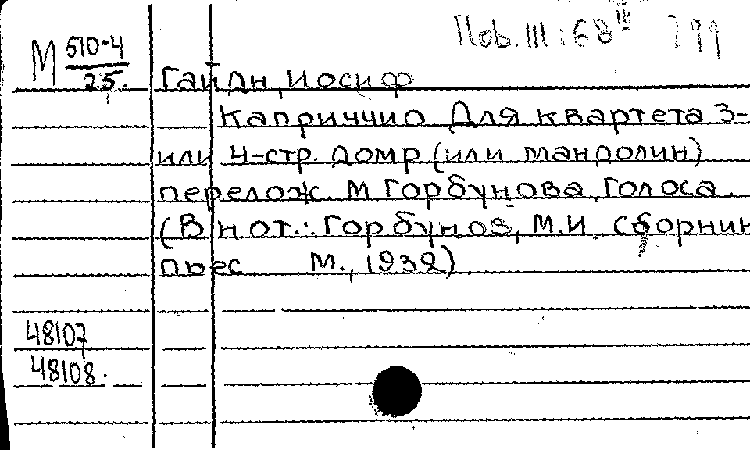 Пов. III : 68 III
М 510-4
25.
Гайдн, Иосиф
Каприччио Для квартета 3-
или 4-стр. домр (или мандолин)
перелож. М. Горбунова. Голоса.
(В нот.: Горбунов, М.И. Сборник
пьес М., 1932)
48107
48108.